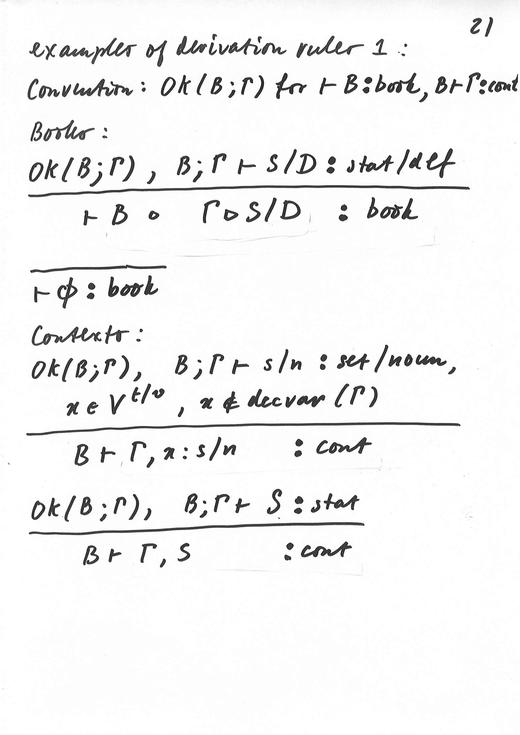 21
examples of derivation rules 1 :
Convention: OK(B;Γ) for ⊢ B:book, B⊢Γ:cont
Books:
OK(B;Γ), B;Γ ⊢ S/D : stat/def
⊢ B ∘ Γ▷S/D : book
⊢ ϕ : book
Contexts:
OK(B;Γ), B;Γ ⊢ s/n : set/noun,
x ∈ V^t/v, x ∉ decvar(Γ)
B ⊢ Γ, x:s/n : cont
OK(B;Γ), B;Γ ⊢ S : stat
B ⊢ Γ, S : cont